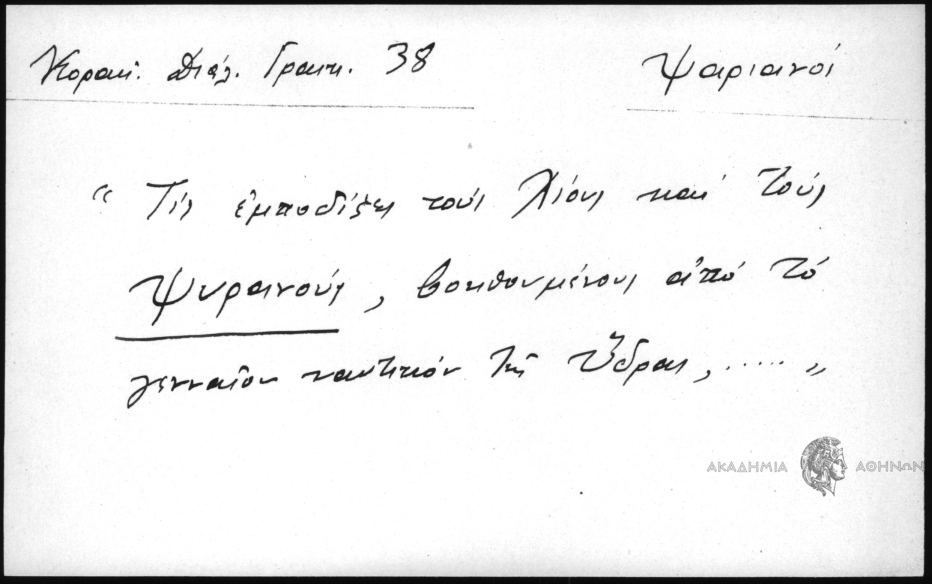 Κοραή. Διάλ. Γραικ. 38
Ψαριανοί
“ Τίς ἐμποδίζει τούς Χίους καί τούς
Ψυριανούς, βοηθουμένους ἀπό τό
γενναῖον ναυτικόν τῆς Ὕδρας, ..... „
ΑΚΑΔΗΜΙΑ ΑΘΗΝΩΝ